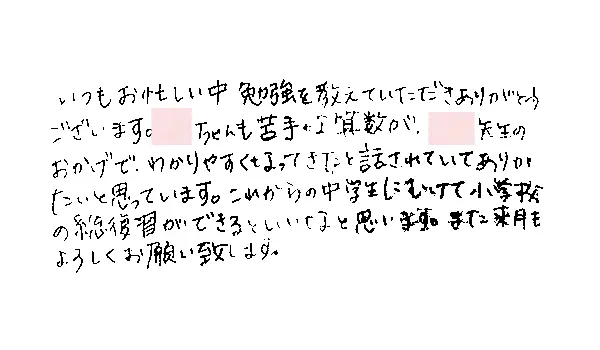 いつもお忙しい中 勉強を教えていただきありがとう
ございます。 ちゃんも苦手な算数が、 先生の
おかげで、わかりやすくなってきたと話されていてありが
たいと思っています。これからの中学生にむけて小学校
の総復習ができるといいなと思います。また来月も
よろしくお願い致します。